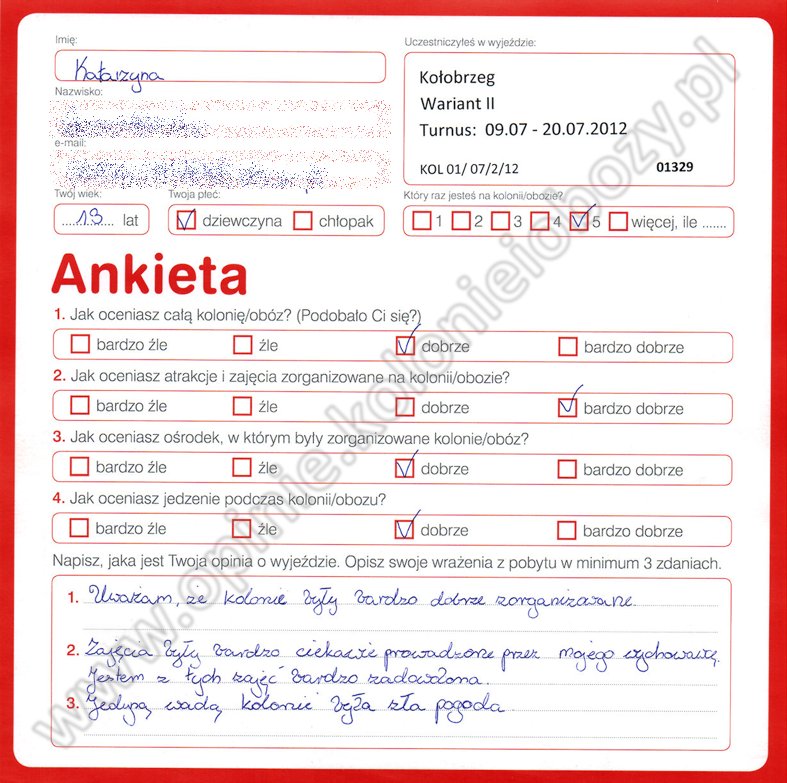 Imię:
Katarzyna
Nazwisko:
e-mail:
Twój wiek:
13 lat
Twoja płeć:
dziewczyna chłopak
Uczestniczyłeś w wyjeździe:
Kołobrzeg
Wariant II
Turnus: 09.07 - 20.07.2012
KOL 01/ 07/2/12 01329
Który raz jesteś na kolonii/obozie?
1 2 3 4 5 więcej, ile .......
Ankieta
1. Jak oceniasz całą kolonię/obóz? (Podobało Ci się?)
bardzo źle źle dobrze bardzo dobrze
2. Jak oceniasz atrakcje i zajęcia zorganizowane na kolonii/obozie?
bardzo źle źle dobrze bardzo dobrze
3. Jak oceniasz ośrodek, w którym były zorganizowane kolonie/obóz?
bardzo źle źle dobrze bardzo dobrze
4. Jak oceniasz jedzenie podczas kolonii/obozu?
bardzo źle źle dobrze bardzo dobrze
Napisz, jaka jest Twoja opinia o wyjeździe. Opisz swoje wrażenia z pobytu w minimum 3 zdaniach.
1. Uważam, że kolonie były bardzo dobrze zorganizowane.
2. Zajęcia były bardzo ciekawie prowadzone przez mojego wychowawcę.
Jestem z tych zajęć bardzo zadowolona.
3. Jedyną wadą kolonie była zła pogoda
www.opinie.kolonieiobozy.pl